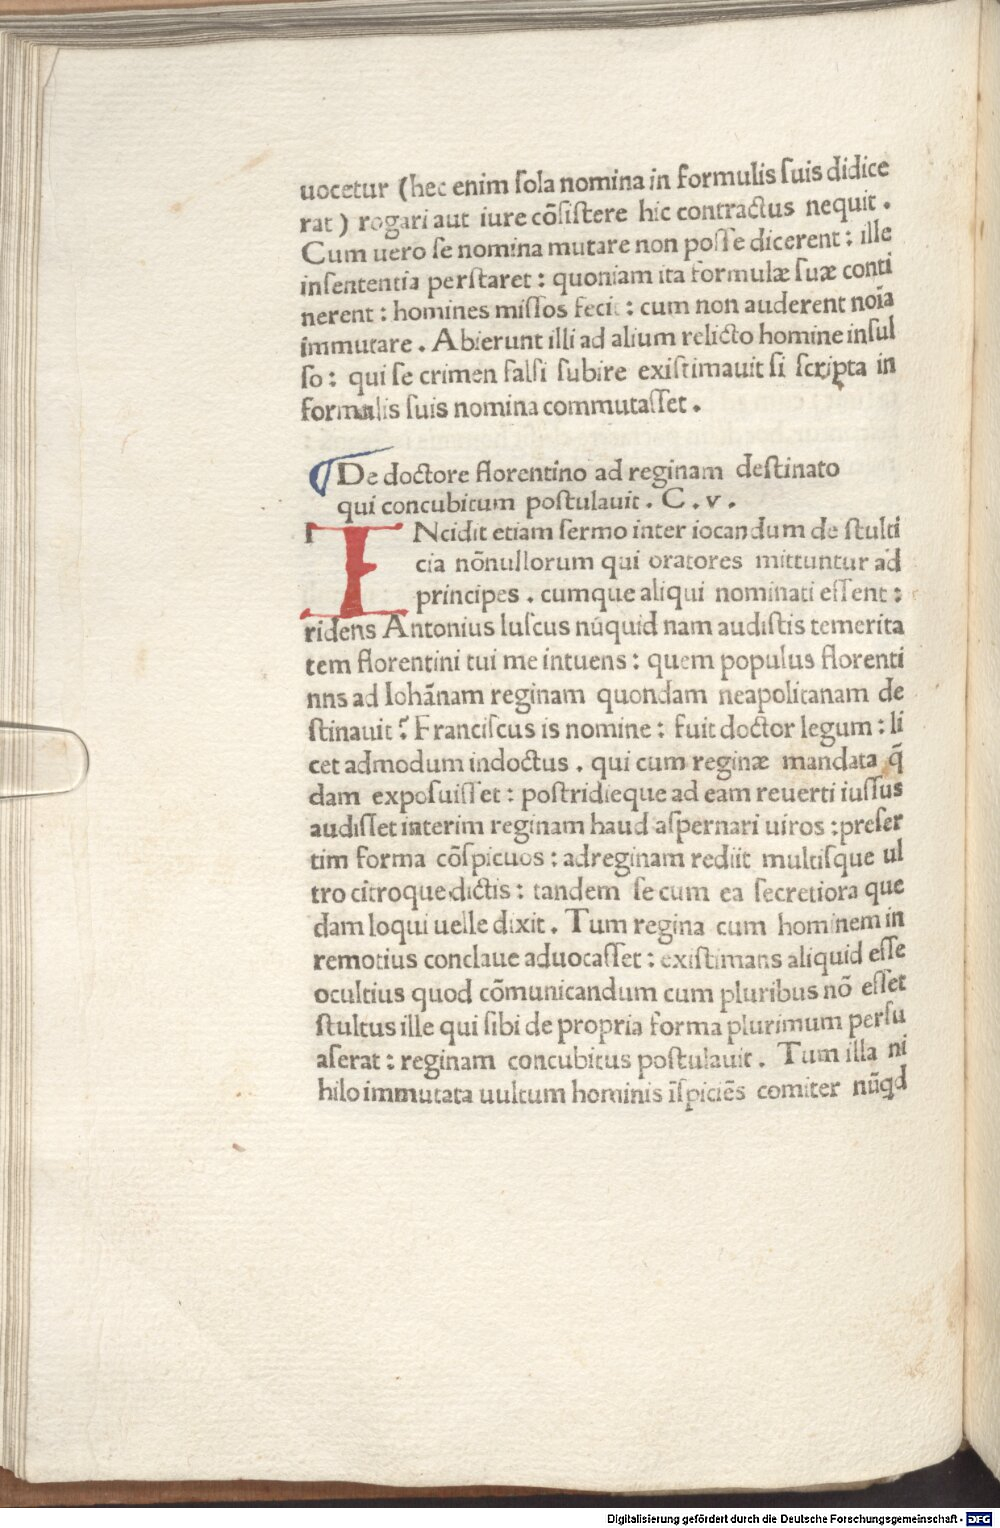 uocetur (hec enim ſola nomina in formulis ſuis didice
rat) rogari aut iure cōſiſtere hic contractus nequit.
Cum uero ſe nomina mutare non poſſe dicerent: ille
inſententia perſtaret: quoniam ita formulæ ſuæ conti
nerent: homines miſſos fecit: cum non auderent noīa
immutare. Abierunt illi ad alium relicto homine inſul
ſo: qui ſe crimen falſi ſubire exiſtimauit ſi ſcripta in
formulis ſuis nomina commutaſſet.
¶ De doctore florentino ad reginam deſtinato
qui concubitum poſtulauit. C. v.
INcidit etiam ſermo inter iocandum de ſtulti
cia nōnullorum qui oratores mittuntur ad
principes. cumque aliqui nominati eſſent:
ridens Antonius luſcus nūquid nam audiſtis temerita
tem florentini tui me intuens: quem populus florenti
nns ad Iohānam reginam quondam neapolitanam de
ſtinauit? Franciſcus is nomine: fuit doctor legum: li
cet admodum indoctus. qui cum reginæ mandata q̄
dam expoſuiſſet: poſtridieque ad eam reuerti iuſſus
audiſſet interim reginam haud aſpernari uiros: preſer
tim forma cōſpicuos: adreginam rediit multiſque ul
tro citroque dictis: tandem ſe cum ea ſecretiora que
dam loqui uelle dixit. Tum regina cum hominem in
remotius conclaue aduocaſſet: exiſtimans aliquid eſſe
ocultius quod cōmunicandum cum pluribus nō eſſet
ſtultus ille qui ſibi de propria forma plurimum perſu
aſerat: reginam concubitus poſtulauit. Tum illa ni
hilo immutata uultum hominis īſpiciēs comiter nūqd
Digitalisierung gefördert durch die Deutsche Forschungsgemeinschaft - DFG